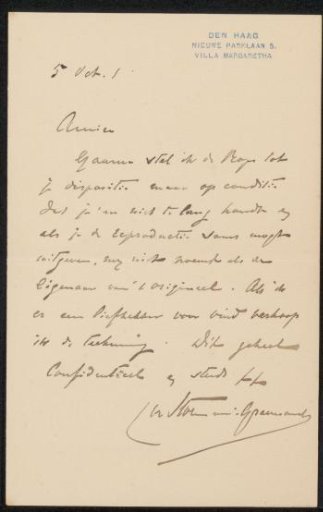 DEN HAAG
NIEUWE PARKLAAN 5.
VILLA MARGARETHA
5 Oct. 1
Amice
Gaarne stel ik de Rops tot
je dispositie maar op conditie
dat je 'm niet te lang houdt en
als je de reproductie soms mogt
uitgeven, mij niet noemt als de
Eigenaar van 't origineel. Als ik
er een liefhebber voor vind verkoop
ik de teekening. Dit geheel
Confidentieel en steeds tt